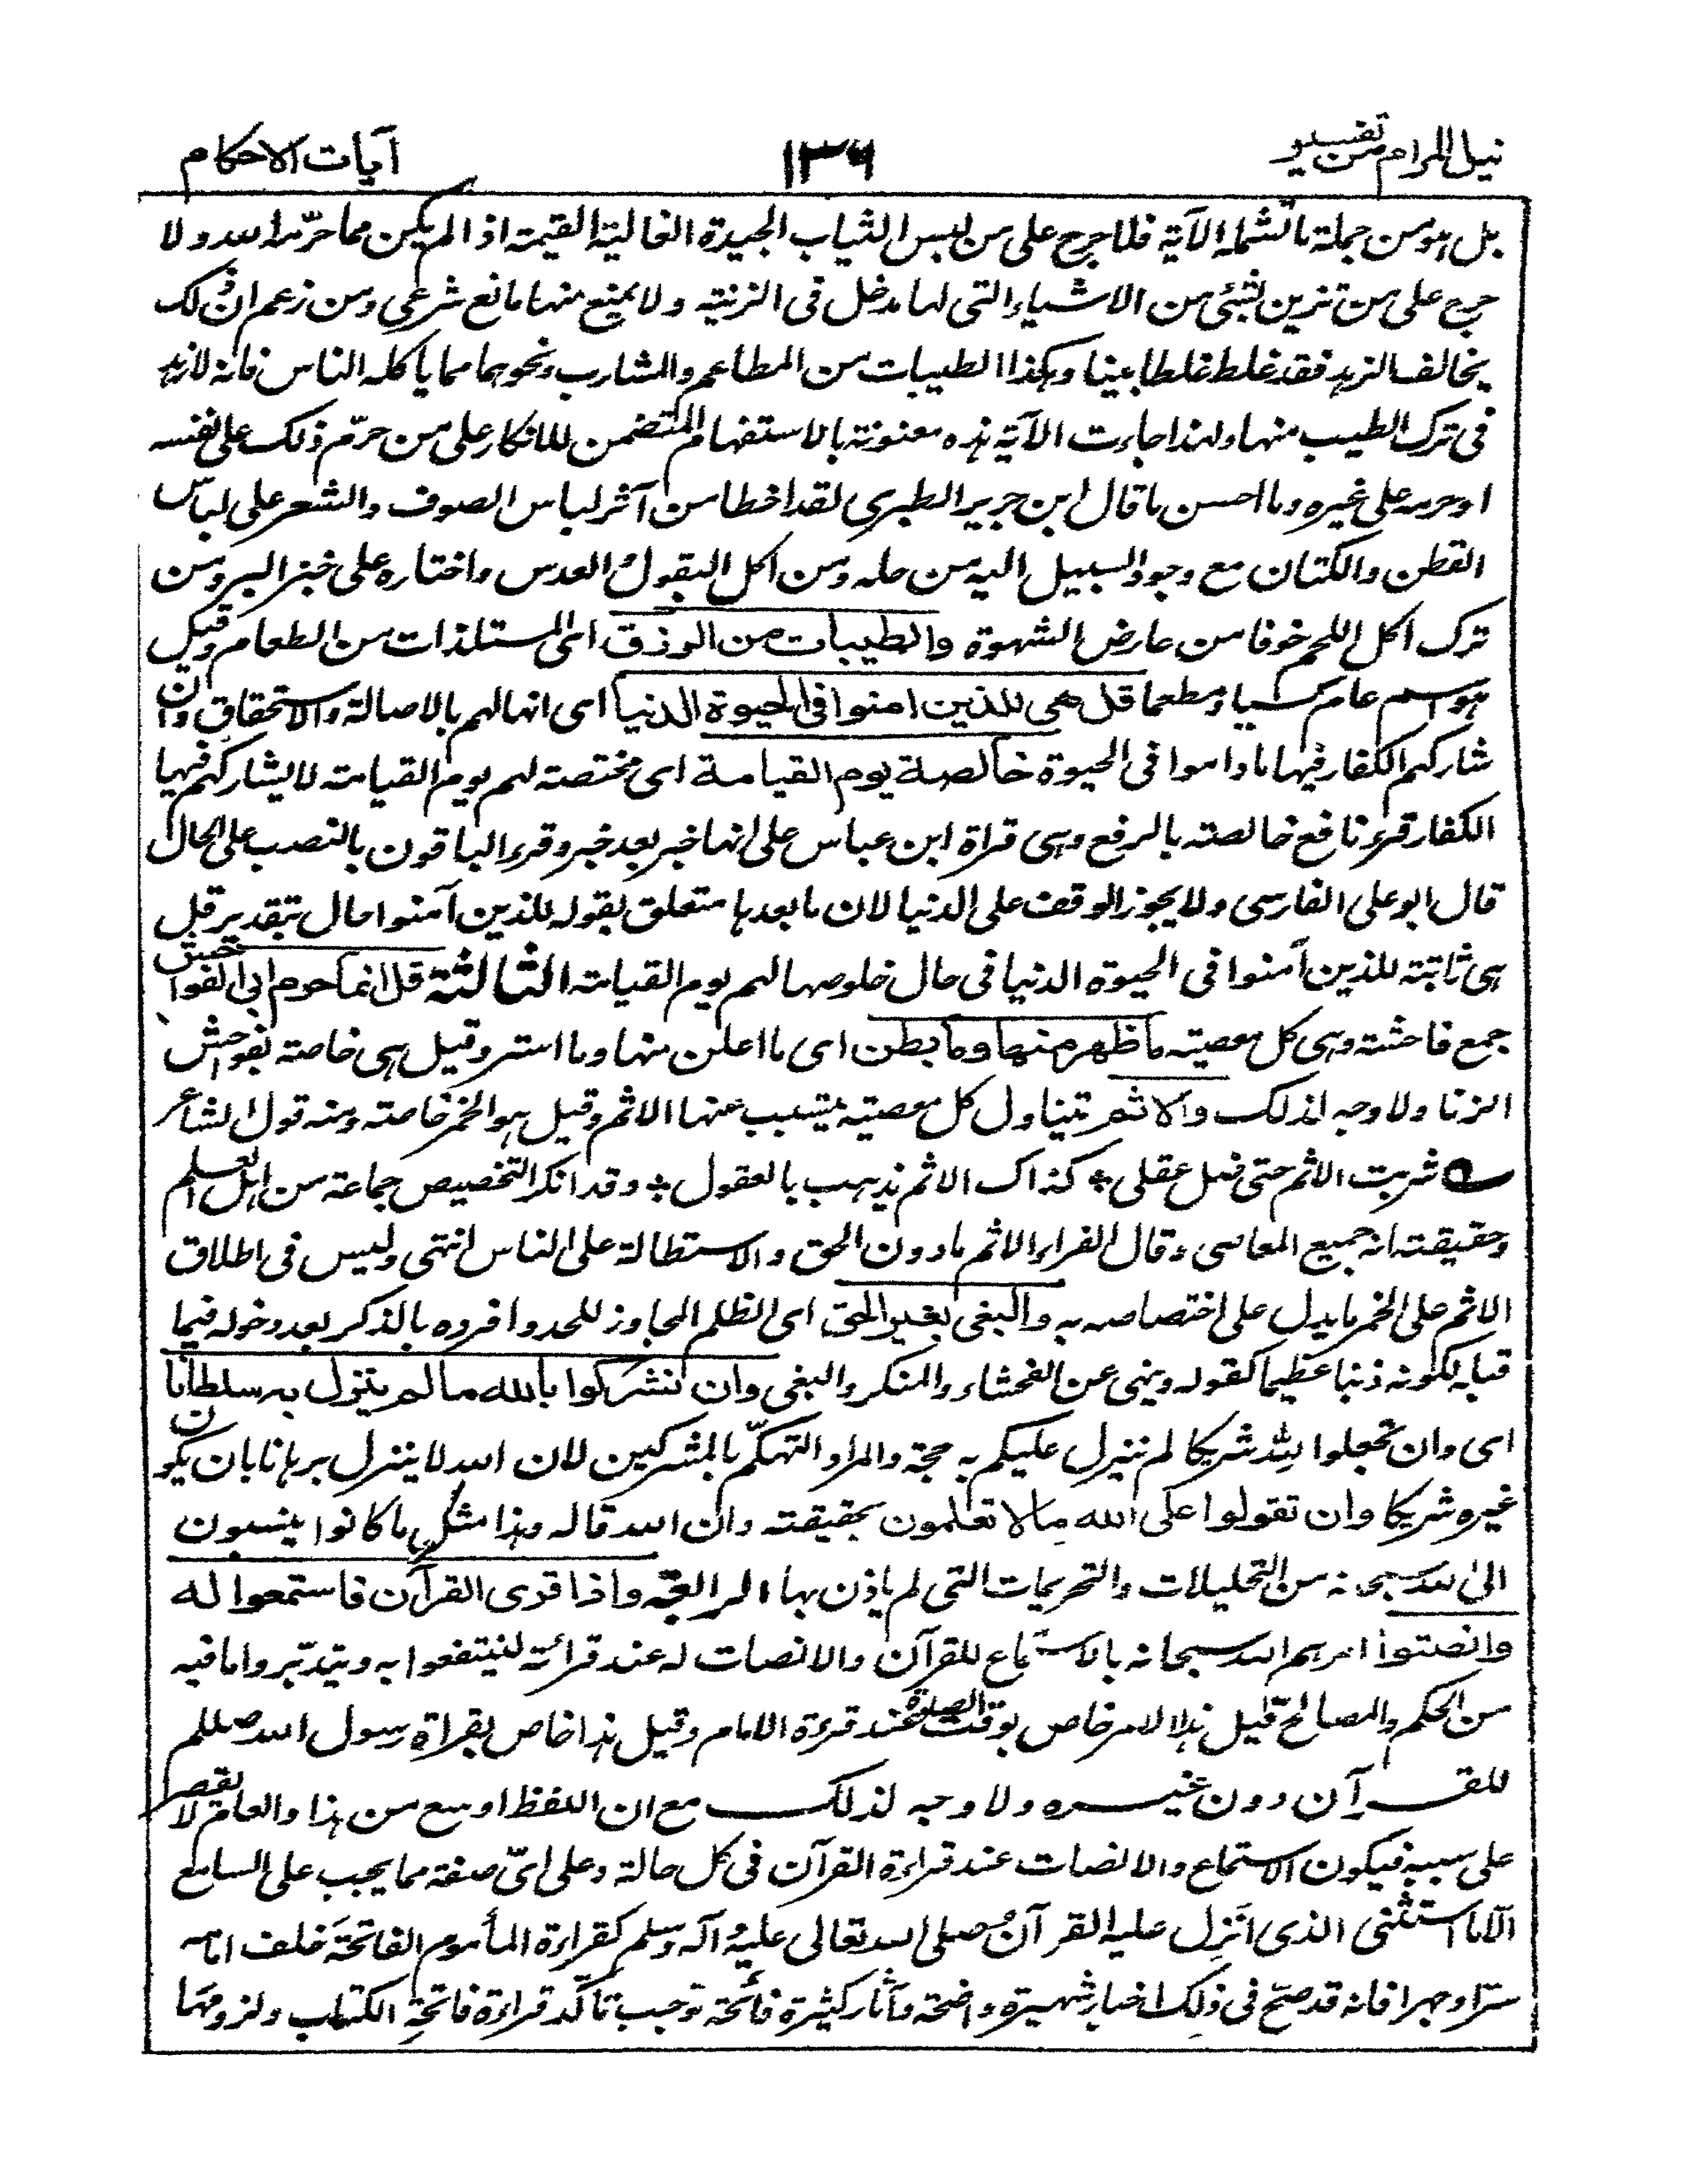 نيل المرام من تفسير
١٣٦
آيات الاحكام
بل هو من جملة ما تشمله الآية فلا حرج على من لبس الثياب الجيدة الغالية القيمة اذا لم يكن مما حرّمه الله ولا
حرج على من تزين بشئ من الاشياء التى لها مدخل فى الزينة ولا يمنع منها مانع شرعى ومن زعم ان ذلك
يخالف الزهد فقد غلط غلطا بينا وهكذا الطيبات من المطاعم والمشارب ونحوهما مما ياكله الناس فانه لا زهد
فى ترك الطيب منها ولهذا جاءت الآية هذه معنونة بالاستفهام المتضمن للانكار على من حرّم ذلك على نفسه
او حرمه على غيره وما احسن ما قال ابن جرير الطبرى لقد اخطا من آثر لباس الصوف والشعر على لباس
القطن والكتان مع وجود السبيل اليه من حله ومن اكل البقول والعدس واختاره على خبز البر ومن
ترك اكل اللحم خوفا من عارض الشهوة والطيبات من الرزق اى المستلذات من الطعام وقيل
هو اسم عام كسبا ومطعما قل هى للذين امنوا فى الحيوة الدنيا اى انها لهم بالاصالة والاستحقاق وان
شاركهم الكفار فيها ما داموا فى الحيوة خالصة يوم القيامة اى مختصة لهم يوم القيامة لا يشاركهم فيها
الكفار قرء نافع خالصة بالرفع وهى قراة ابن عباس على انها خبر بعد خبر وقرء الباقون بالنصب على الحال
قال ابو على الفارسى ولا يجوز الوقف على الدنيا لان ما بعدها متعلق بقوله للذين آمنوا حال بتقدير قل
هى ثابتة للذين آمنوا فى الحيوة الدنيا فى حال خلوصها لهم يوم القيامة الثالثة قل انما حرم ربى الفواحش
جمع فاحشة وهى كل معصية ما ظهر منها وما بطن اى ما اعلن منها وما استر وقيل هى خاصة بفواحش
الزنا ولا وجه لذلك والاثم يتناول كل معصية يتسبب عنها الاثم وقيل هو الخمر خاصة ومنه قول الشاعر
شربت الاثم حتى ضل عقلى ÷ كذاك الاثم يذهب بالعقول ÷ وقد انكر التخصيص جماعة من اهل العلم
وحقيقته انه جميع المعاصى وقال الفراء الاثم ما دون الحق والاستطالة على الناس انتهى وليس فى اطلاق
الاثم على الخمر ما يدل على اختصاصه به والبغى بغير الحق اى الظلم المجاوز للحد وافرده بالذكر بعد دخوله فيما
قبله لكونه ذنبا عظيما كقوله وينهى عن الفحشاء والمنكر والبغى وان تشركوا بالله ما لم ينزل به سلطانا
اى وان تجعلوا لله شريكا لم ينزل عليكم به حجة والمراد التهكّم بالمشركين لان الله لا ينزل برهانا بان يكون
غيره شريكا وان تقولوا على الله ما لا تعلمون بحقيقته وان الله قاله وهذا مثل ما كانوا ينسبون
الى الله سبحانه من التحليلات والتحريمات التى لم ياذن بها الرابعة واذا قرى القرآن فاستمعوا له
وانصتوا امرهم الله سبحانه بالاستماع للقرآن والانصات له عند قرائته لينتفعوا به ويتدبّروا ما فيه
من الحكم والمصالح قيل هذا الامر خاص بوقت الصلوة عند قرءة الامام وقيل هذا خاص بقراة رسول الله صللم
للقرآن دون غيره ولا وجه لذلك مع ان اللفظ اوسع من هذا والعام لا يقصر
على سببه فيكون الاستماع والانصات عند قراءة القرآن فى كل حالة وعلى اىّ صفة مما يجب على السامع
الّا ما استثنى الذى انزل عليه القرآن صلى الله تعالى عليه وآله وسلم كقراءة المأموم الفاتحة خلف امامه
سرّا وجهرا فانه قد صحّ فى ذلك اخبار شهيرة واضحة وآثار كثيرة فائحة توجب تاكّد قراءة فاتحة الكتاب ولزومها